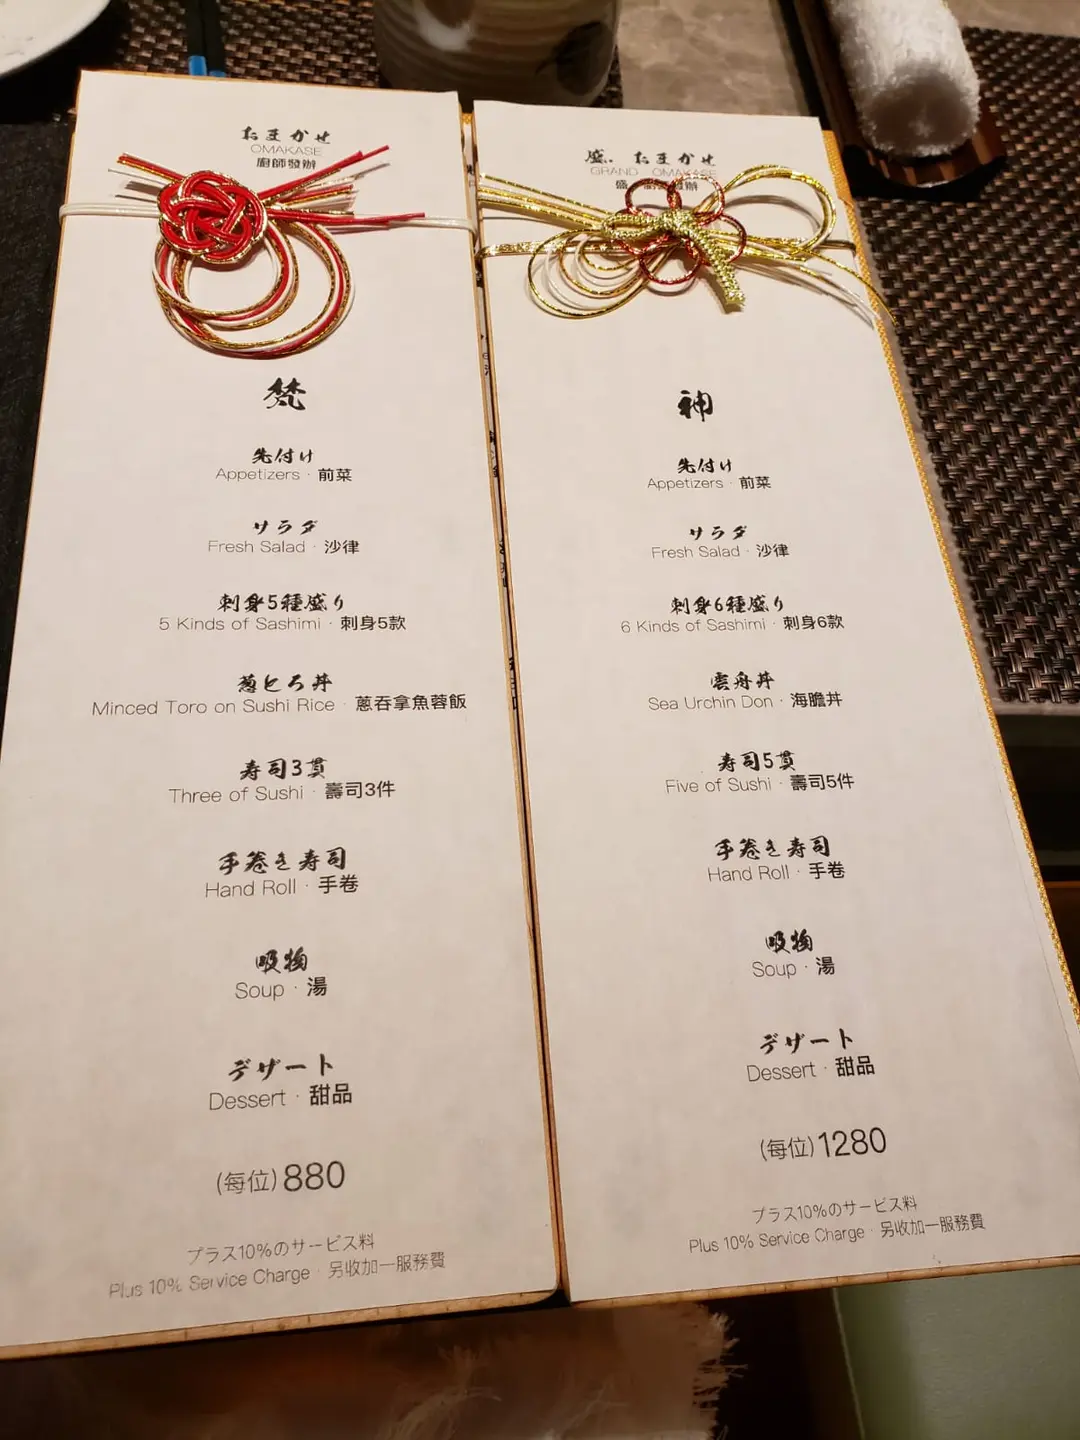 おまかせ
OMAKASE
廚師發辦
梵
先付け
Appetizers · 前菜
サラダ
Fresh Salad · 沙律
刺身5種盛り
5 Kinds of Sashimi · 刺身5款
葱とろ丼
Minced Toro on Sushi Rice · 蔥吞拿魚蓉飯
寿司3貫
Three of Sushi · 壽司3件
手巻き寿司
Hand Roll · 手卷
吸物
Soup · 湯
デザート
Dessert · 甜品
(每位)880
プラス10%のサービス料
Plus 10% Service Charge · 另收加一服務費
盛. おまかせ
GRAND OMAKASE
盛 廚師發辦
神
先付け
Appetizers · 前菜
サラダ
Fresh Salad · 沙律
刺身6種盛り
6 Kinds of Sashimi · 刺身6款
雲舟丼
Sea Urchin Don · 海膽丼
寿司5貫
Five of Sushi · 壽司5件
手巻き寿司
Hand Roll · 手卷
吸物
Soup · 湯
デザート
Dessert · 甜品
(每位)1280
プラス10%のサービス料
Plus 10% Service Charge · 另收加一服務費